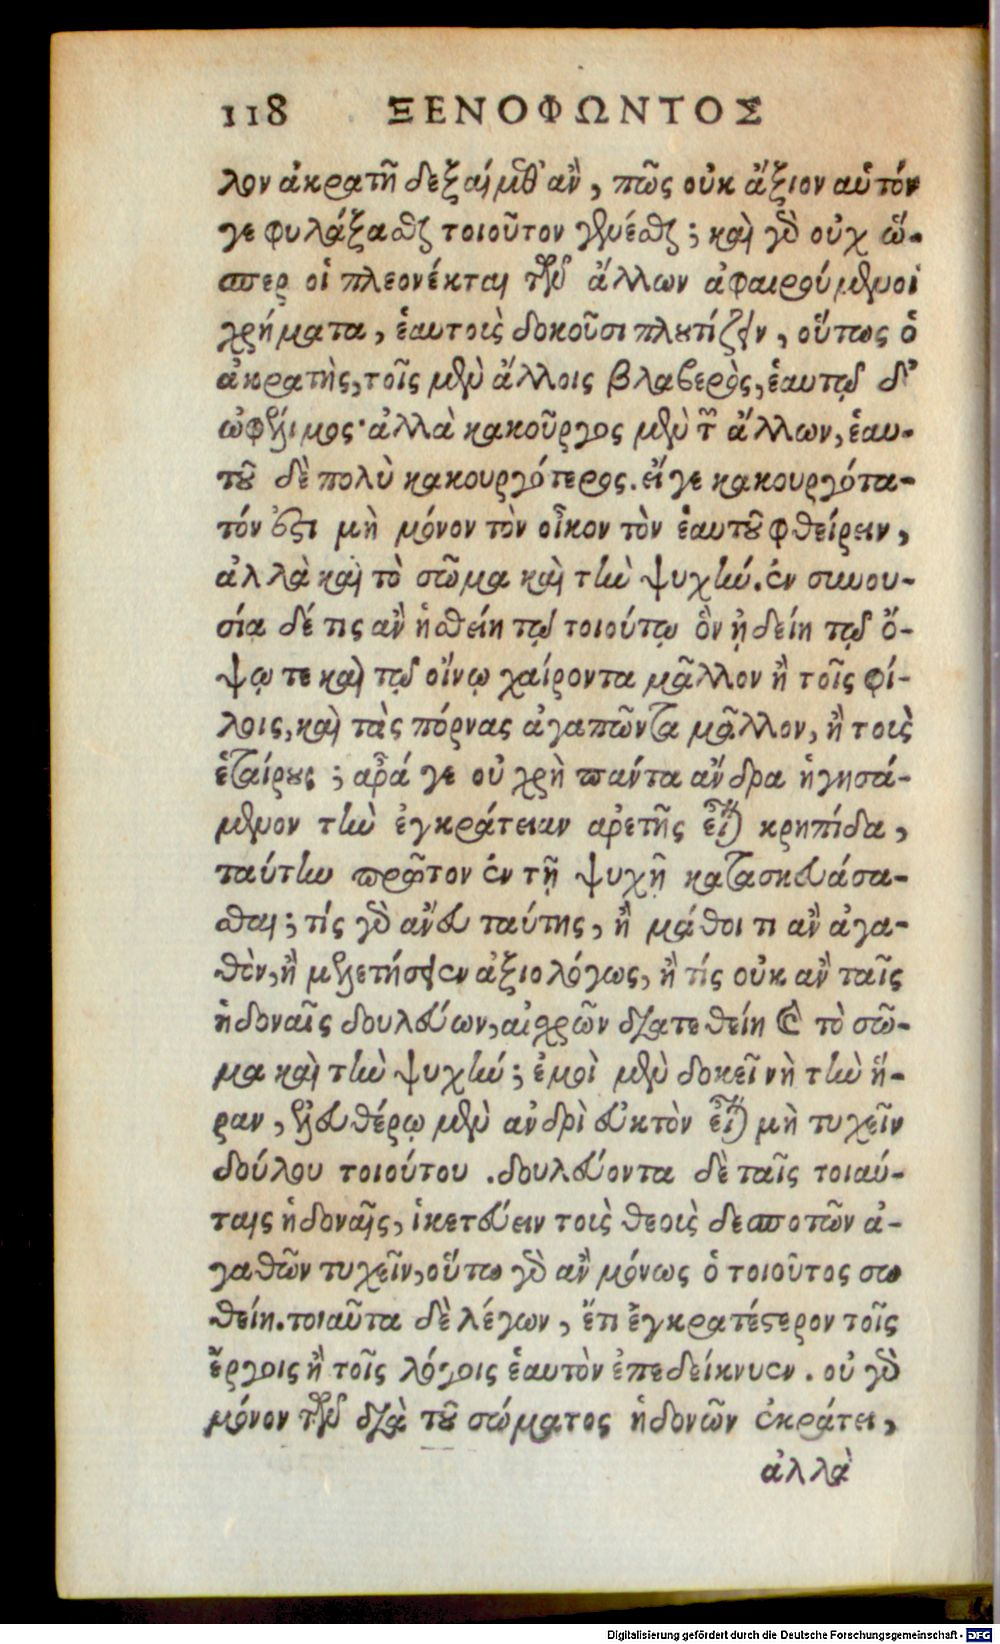 118 ΞΕΝΟΦΩΝΤΟΣ
λον ἀκρατῆ δεξαίμεθ' ἂν, πῶς οὐκ ἄξιον αὐτόν
γε φυλάξασθαι τοιοῦτον γενέσθαι; καὶ γὰρ οὐχ ὥ-
σπερ οἱ πλεονέκται τῶν ἄλλων ἀφαιρούμενοι
χρήματα, ἑαυτοὺς δοκοῦσι πλουτίζειν, οὕτως ὁ
ἀκρατὴς, τοῖς μὲν ἄλλοις βλαβερὸς, ἑαυτῷ δ'
ὠφέλιμος· ἀλλὰ κακοῦργος μὲν τῶν ἄλλων, ἑαυ-
τοῦ δὲ πολὺ κακουργότερος. εἴ γε κακουργότα-
τόν ἐστι μὴ μόνον τὸν οἶκον τὸν ἑαυτοῦ φθείρειν,
ἀλλὰ καὶ τὸ σῶμα καὶ τὴν ψυχήν. ἐν συνου-
σίᾳ δέ τις ἂν ἡσθείη τῷ τοιούτῳ ὃν ᾐδείη τῷ ὄ-
ψῳ τε καὶ τῷ οἴνῳ χαίροντα μᾶλλον ἢ τοῖς φί-
λοις, καὶ τὰς πόρνας ἀγαπῶντα μᾶλλον, ἢ τοὺς
ἑταίρους; ἆρά γε οὐ χρὴ πάντα ἄνδρα ἡγησά-
μενον τὴν ἐγκράτειαν ἀρετῆς εἶναι κρηπίδα,
ταύτην πρῶτον ἐν τῇ ψυχῇ κατασκευάσα-
σθαι; τίς γὰρ ἄνευ ταύτης, ἢ μάθοι τι ἂν ἀγα-
θὸν, ἢ μελετήσειεν ἀξιολόγως, ἢ τίς οὐκ ἂν ταῖς
ἡδοναῖς δουλεύων, αἰσχρῶν διατεθείη καὶ τὸ σῶ-
μα καὶ τὴν ψυχήν; ἐμοὶ μὲν δοκεῖ νὴ τὴν ἥ-
ραν, ἐλευθέρῳ μὲν ἀνδρὶ εὐκτὸν εἶναι μὴ τυχεῖν
δούλου τοιούτου. δουλεύοντα δὲ ταῖς τοιαύ-
ταις ἡδοναῖς, ἱκετεύειν τοὺς θεοὺς δεσποτῶν ἀ-
γαθῶν τυχεῖν, οὕτω γὰρ ἂν μόνως ὁ τοιοῦτος σω
θείη. τοιαῦτα δὲ λέγων, ἔτι ἐγκρατέστερον τοῖς
ἔργοις ἢ τοῖς λόγοις ἑαυτὸν ἐπεδείκνυεν. οὐ γὰρ
μόνον τῶν διὰ τοῦ σώματος ἡδονῶν ἐκράτει,
ἀλλὰ
Digitalisierung gefördert durch die Deutsche Forschungsgemeinschaft - DFG